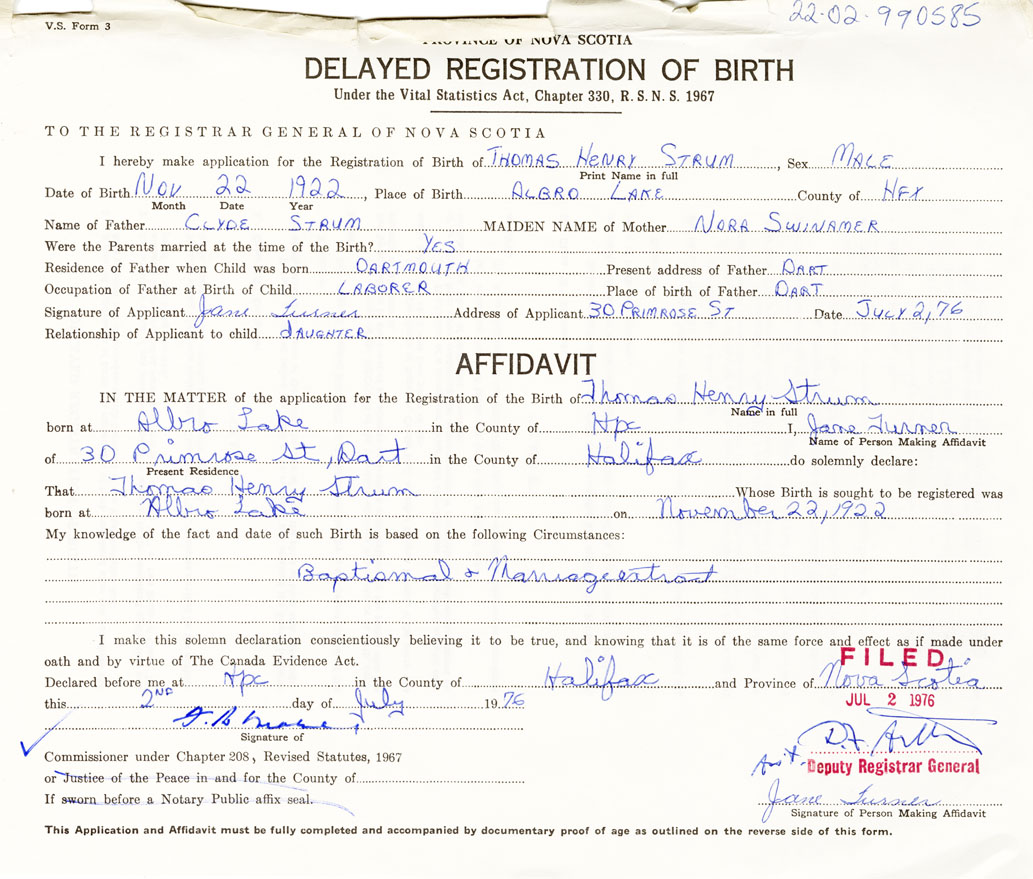 V.S. Form 3
22-02-990585
PROVINCE OF NOVA SCOTIA
DELAYED REGISTRATION OF BIRTH
Under the Vital Statistics Act, Chapter 330, R. S. N. S. 1967
TO THE REGISTRAR GENERAL OF NOVA SCOTIA
I hereby make application for the Registration of Birth of THOMAS HENRY STRUM, Sex MALE
Print Name in full
Date of Birth NOV 22 1922, Place of Birth ALBRO LAKE County of HFX
Month Date Year
Name of Father CLYDE STRUM MAIDEN NAME of Mother NORA SWINAMER
Were the Parents married at the time of the Birth? YES
Residence of Father when Child was born DARTMOUTH Present address of Father DART
Occupation of Father at Birth of Child LABORER Place of birth of Father DART
Signature of Applicant Jane Turner Address of Applicant 30 PRIMROSE ST Date JULY 2, 76
Relationship of Applicant to child DAUGHTER
AFFIDAVIT
IN THE MATTER of the application for the Registration of the Birth of Thomas Henry Strum
Name in full
born at Albro Lake in the County of Hfx I, Jane Turner
Name of Person Making Affidavit
of 30 Primrose St, Dart in the County of Halifax do solemnly declare:
Present Residence
That Thomas Henry Strum Whose Birth is sought to be registered was
born at Albro Lake on November 22, 1922
My knowledge of the fact and date of such Birth is based on the following Circumstances:
Baptismal & Marriage extract
I make this solemn declaration conscientiously believing it to be true, and knowing that it is of the same force and effect as if made under
oath and by virtue of The Canada Evidence Act.
FILED
Declared before me at Hfx in the County of Halifax and Province of Nova Scotia
this 2ND day of July 1976
JUL 2 1976
Signature of
Commissioner under Chapter 208, Revised Statutes, 1967
or Justice of the Peace in and for the County of
Ass't. Deputy Registrar General
If sworn before a Notary Public affix seal.
Jane Turner
Signature of Person Making Affidavit
This Application and Affidavit must be fully completed and accompanied by documentary proof of age as outlined on the reverse side of this form.